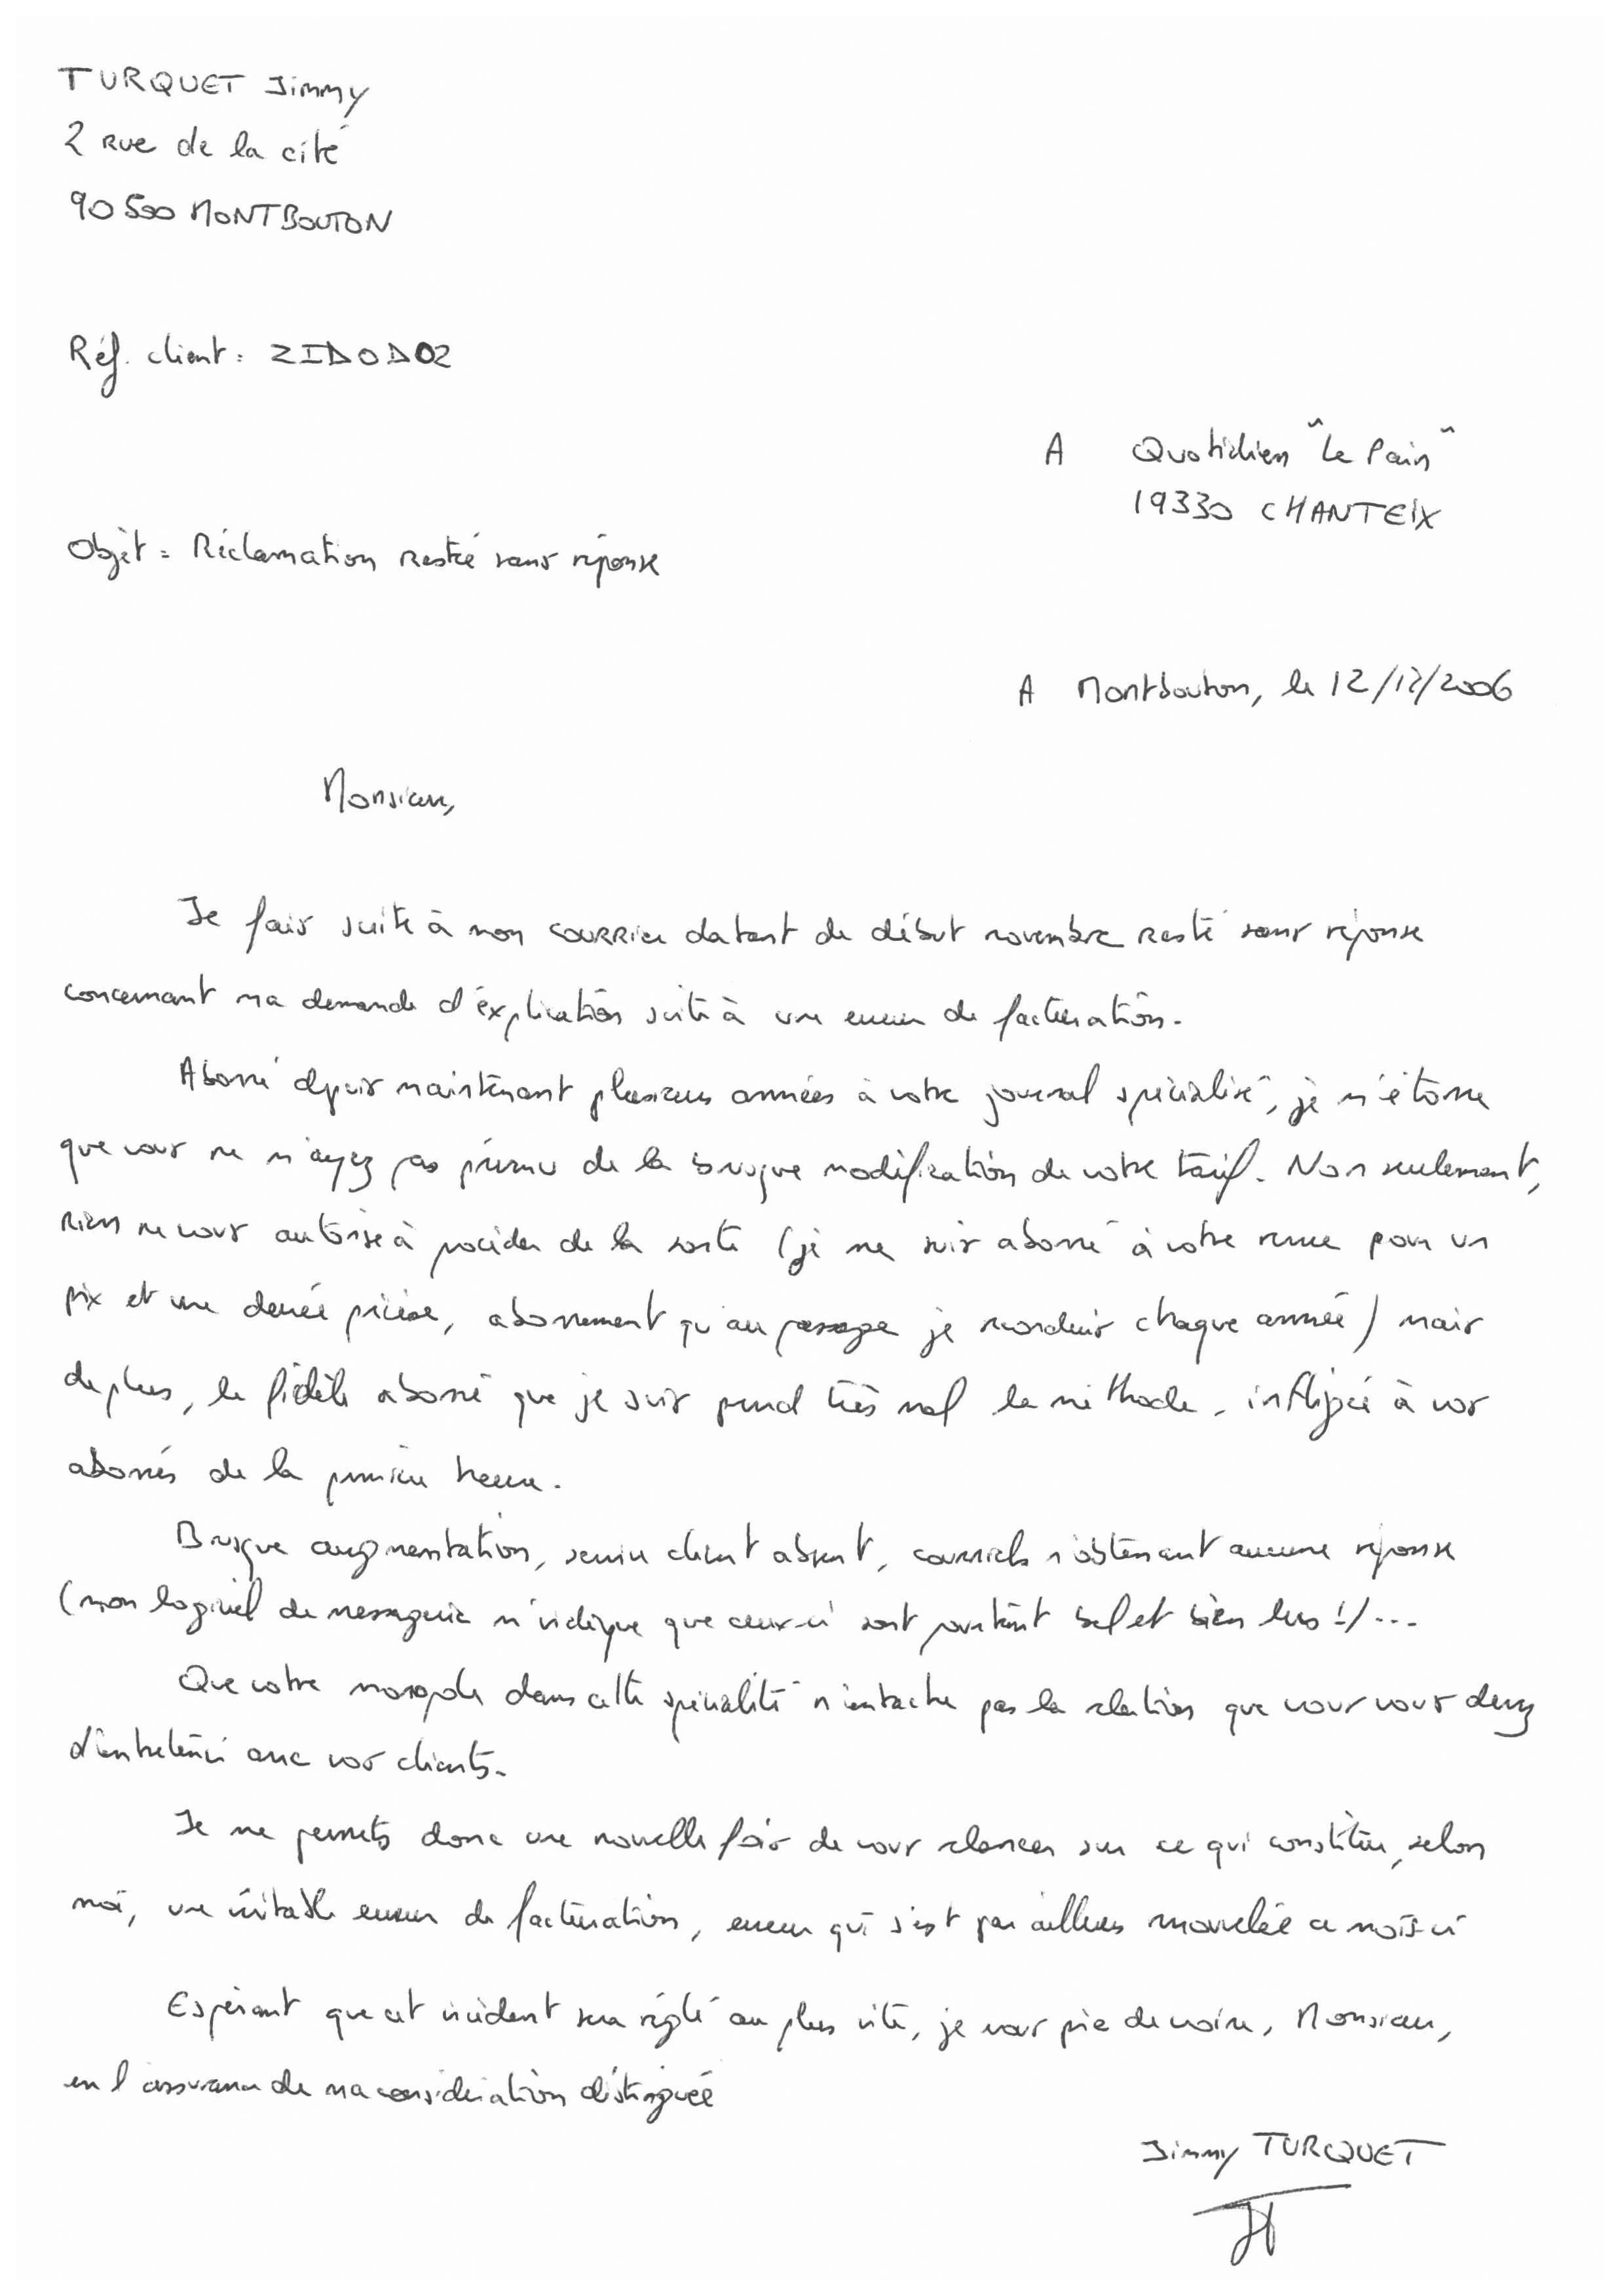 TURQUET Jimmy
2 rue de la cité
90500 MONTBOUTON
Réf. client : ZIDOD02
A Quotidien "Le Pain"
19330 CHANTEIX
Objet : Réclamation resté sans réponse
A Montbouton, le 12/12/2006
Monsieur,
Je fais suite à mon courrier datant de début novembre resté sans réponse
concernant ma demande d'explication suite à une erreur de facturation.
Abonné depuis maintenant plusieurs années à votre journal spécialisé, je m'étonne
que vous ne m'ayez pas prévenu de la brusque modification de votre tarif. Non seulement,
rien ne vous autorise à procéder de la sorte (je me suis abonné à votre revue pour un
prix et une durée précise, abonnement qu'au passage je reconduis chaque année) mais
de plus, le fidèle abonné que je suis prend très mal la méthode, infligée à vos
abonnés de la première heure.
Brusque augmentation, service client absent, courriels n'obtenant aucune réponse
(mon logiciel de messagerie m'indique que ceux-ci sont pourtant bel et bien lus !)...
Que votre monopole dans cette spécialité n'entache pas la relation que vous vous devez
d'entretenir avec vos clients.
Je me permets donc une nouvelle fois de vous relancer sur ce qui constitue, selon
moi, une véritable erreur de facturation, erreur qui s'est par ailleurs renouvelée ce mois-ci
Espérant que cet incident sera réglé au plus vite, je vous prie de croire, Monsieur,
en l'assurance de ma considération distinguée
Jimmy TURQUET
JT